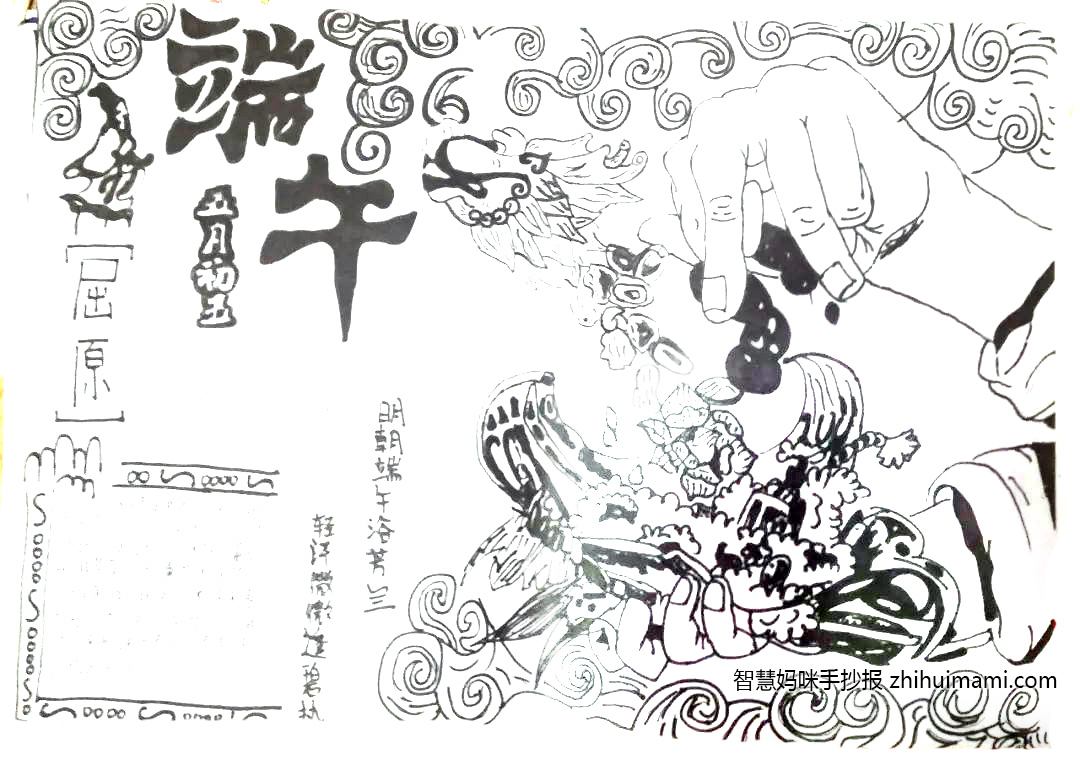 端午
五月初五
[屈原]
轻汗微微透碧纨
明朝端午浴芳兰
智慧妈咪手抄报 zhihuimami.com